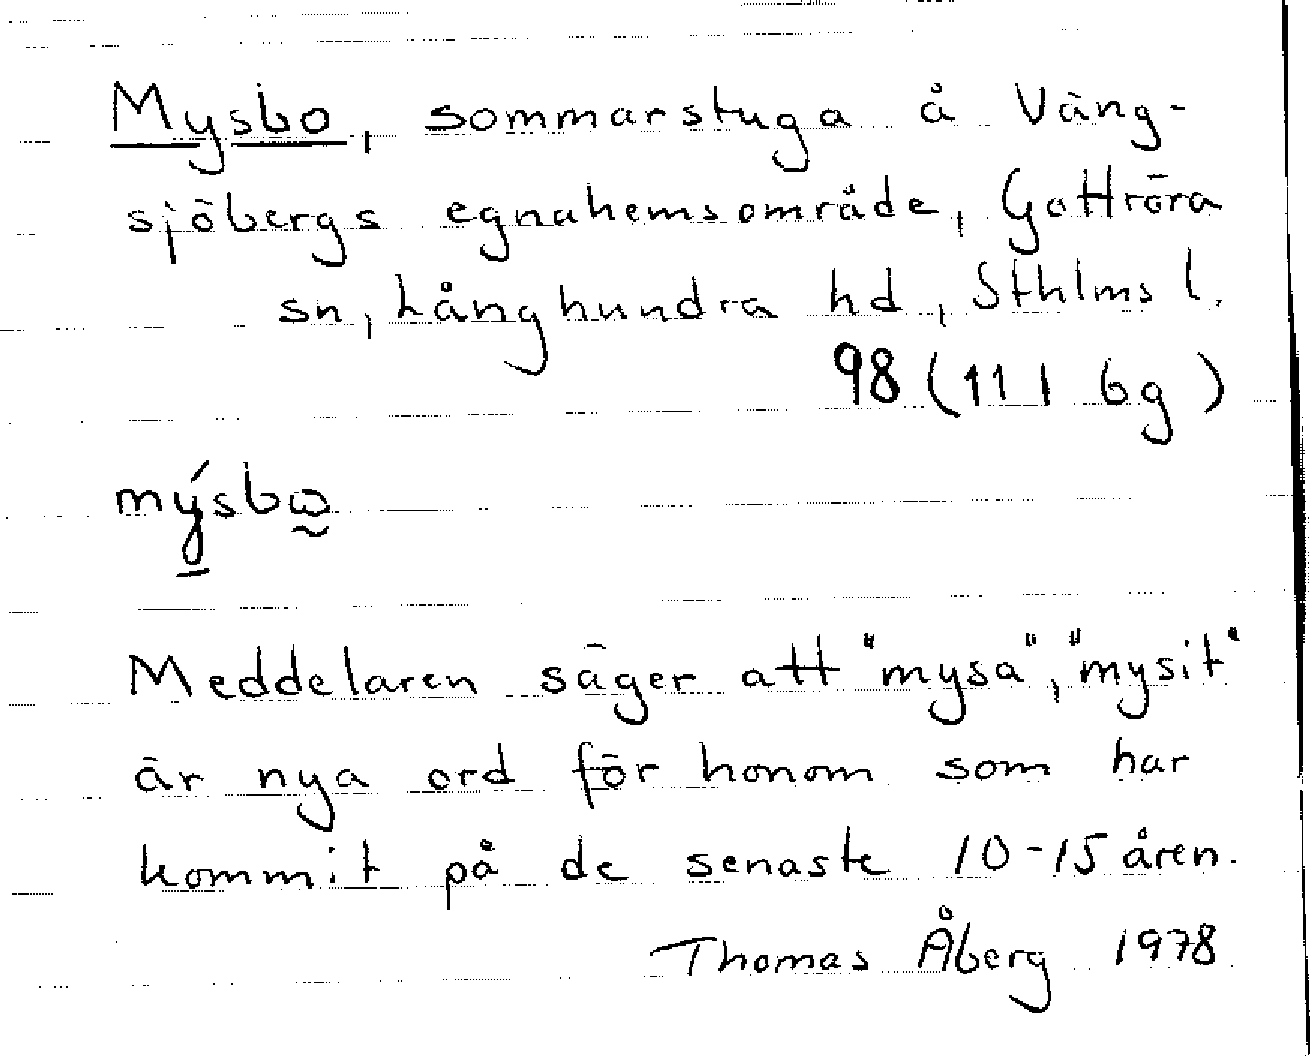 Mysbo, sommarstuga å Väng-
sjöbergs egnahemsområde, Gottröra
sn, Långhundra hd, Sthlms l.
98 (11I 6g)
mýsbω
Meddelaren säger att "mysa", "mysit"
är nya ord för honom som har
kommit på de senaste 10-15 åren.
Thomas Åberg 1978